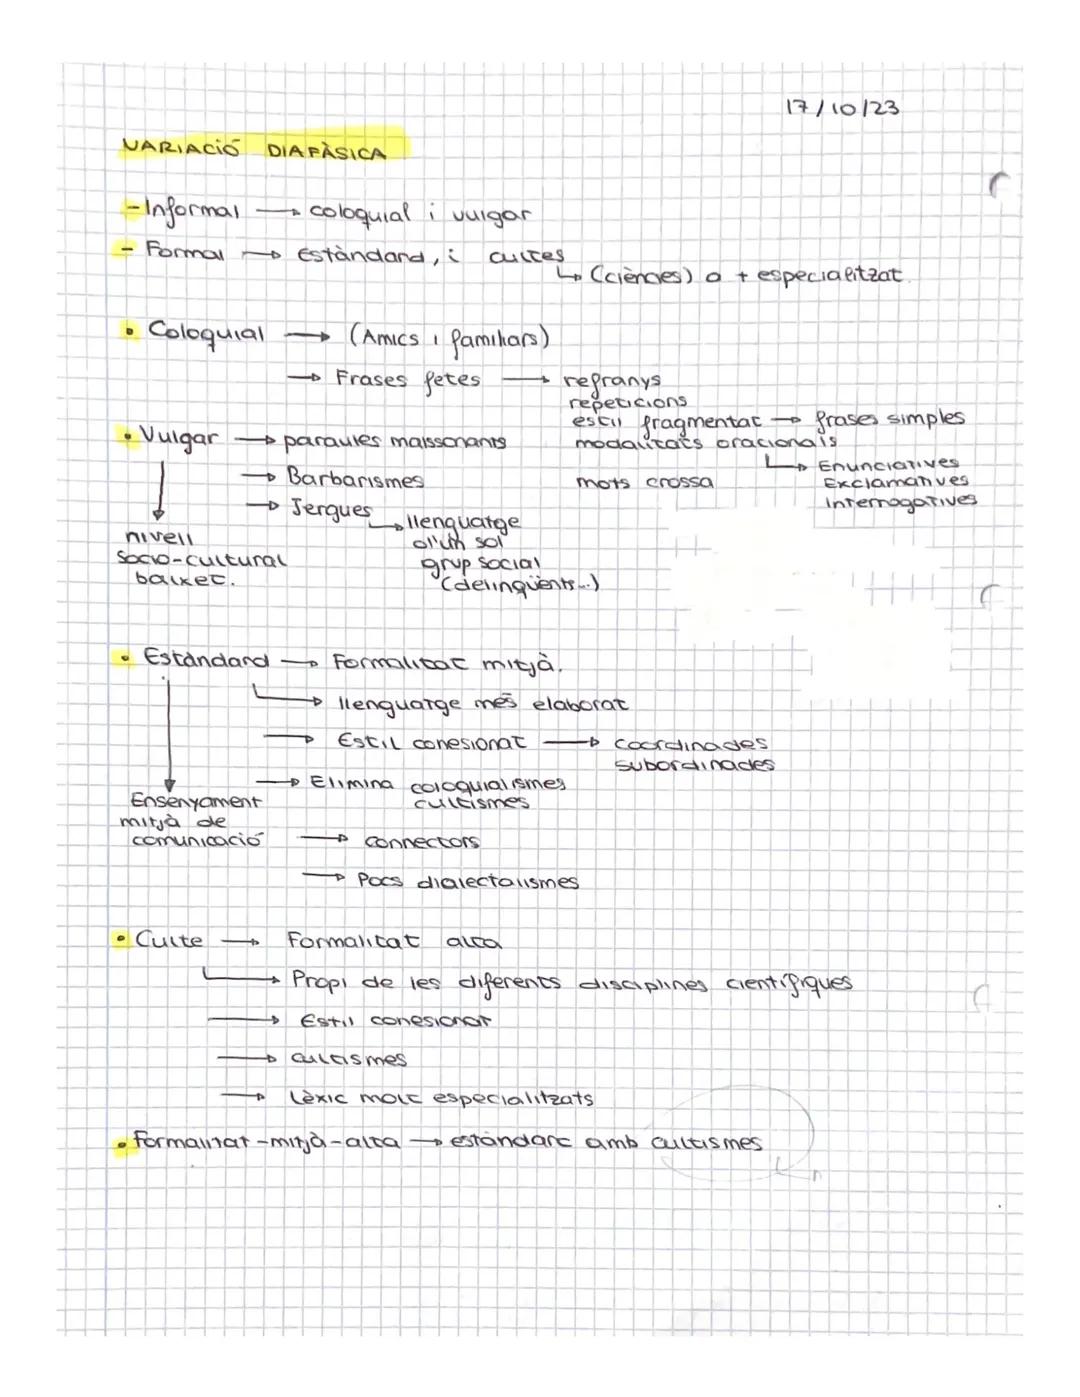 17/10/23
VARIACIÓ DIAFÀSICA
-Informal → coloquial i vulgar
- Formal → Estàndard, i cultes
↳ (ciències) o + especialitzat.
• Coloquial → (Amics i familiars)
→ Frases fetes → refranys
repeticions
estil fragmentat → frases simples
modalitats oracionals
↳ Enunciatives
Exclamatives
Interrogatives
mots crossa
• Vulgar → paraules malssonants
→ Barbarismes
→ Jergues → llenguatge
d'un sol
grup social
(delinqüents...)
↓
nivell
socio-cultural
baixet.
• Estàndard → Formalitat mitjà.
↳ llenguatge més elaborat
→ Estil conesionat → coordinades
subordinades
→ Elimina coloquialismes
cultismes
→ connectors
→ Pocs dialectalismes
↓
Ensenyament
mitjà de
comunicació
• Culte → Formalitat alta
↳ Propi de les diferents disciplines científiques
→ Estil conesionat
→ cultismes
→ Lèxic molt especialitzats
• Formalitat-mitjà-alta → estàndard amb cultismes